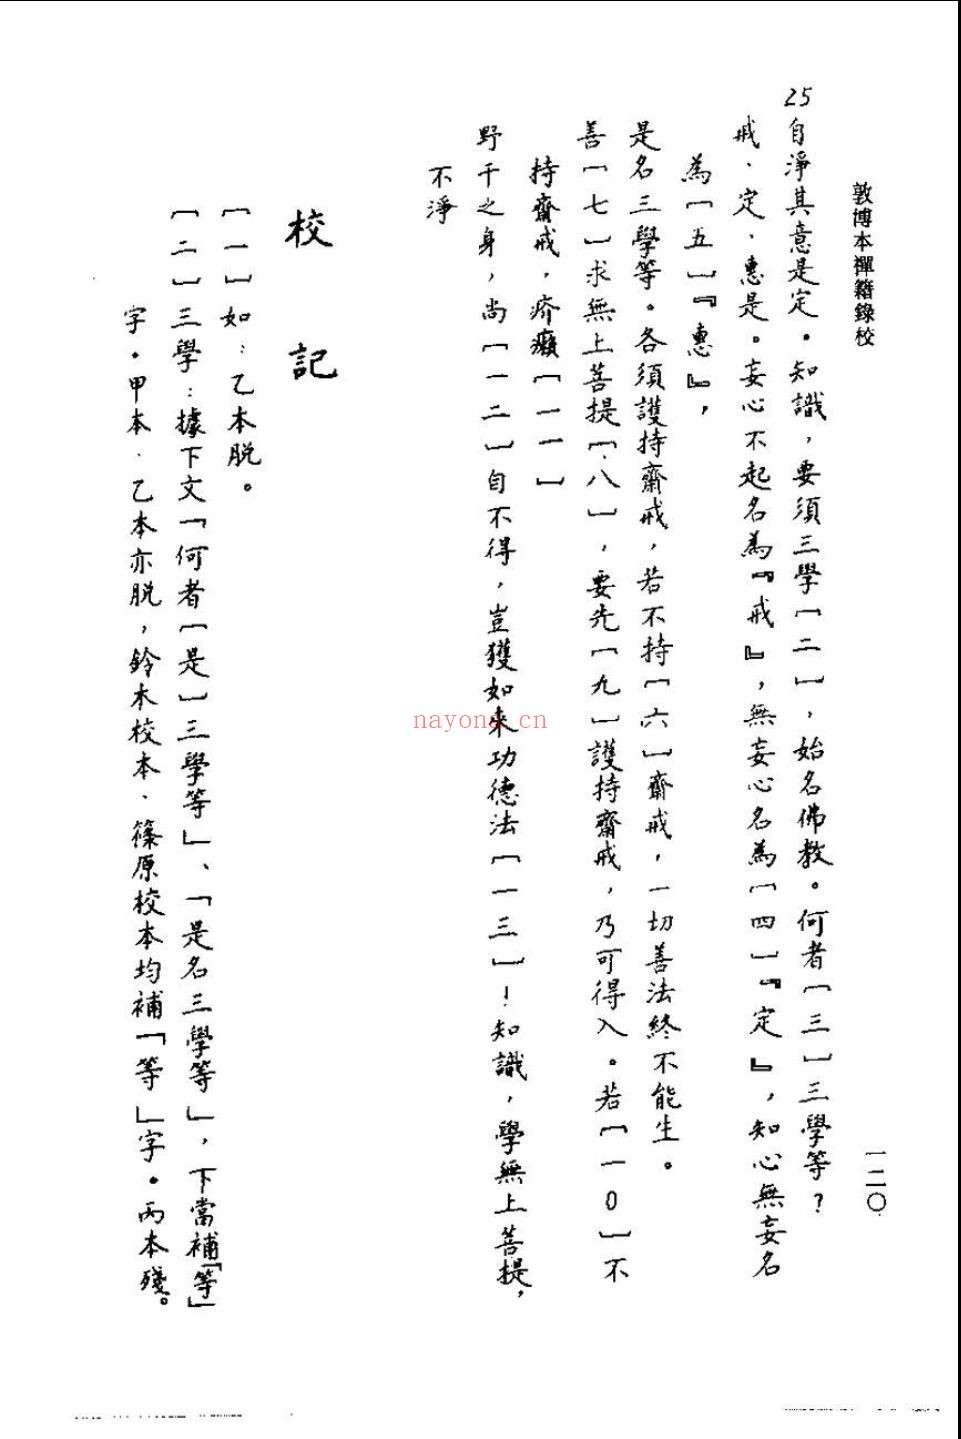 敦博本禪籍錄校
一二〇
25
自淨其意是定。知識，要須三學〔二〕，始名佛教。何者〔三〕三學等？
戒、定、惠是。妄心不起名為『戒』，無妄心名為〔四〕『定』，知心無妄名
為〔五〕『惠』，
是名三學等。各須護持齋戒，若不持〔六〕齋戒，一切善法終不能生。
善〔七〕求無上菩提〔八〕，要先〔九〕護持齋戒，乃可得入。若〔一0〕不
持齋戒，疥癩〔一一〕
野干之身，尚〔一二〕自不得，豈獲如來功德法〔一三〕！知識，學無上菩提，
不淨
校記
〔一〕如：乙本脫。
〔二〕三學：據下文「何者〔是〕三學等」、「是名三學等」，下當補「等」
字。甲本、乙本亦脫，鈴木校本、篠原校本均補「等」字。丙本殘。
nayona.cn